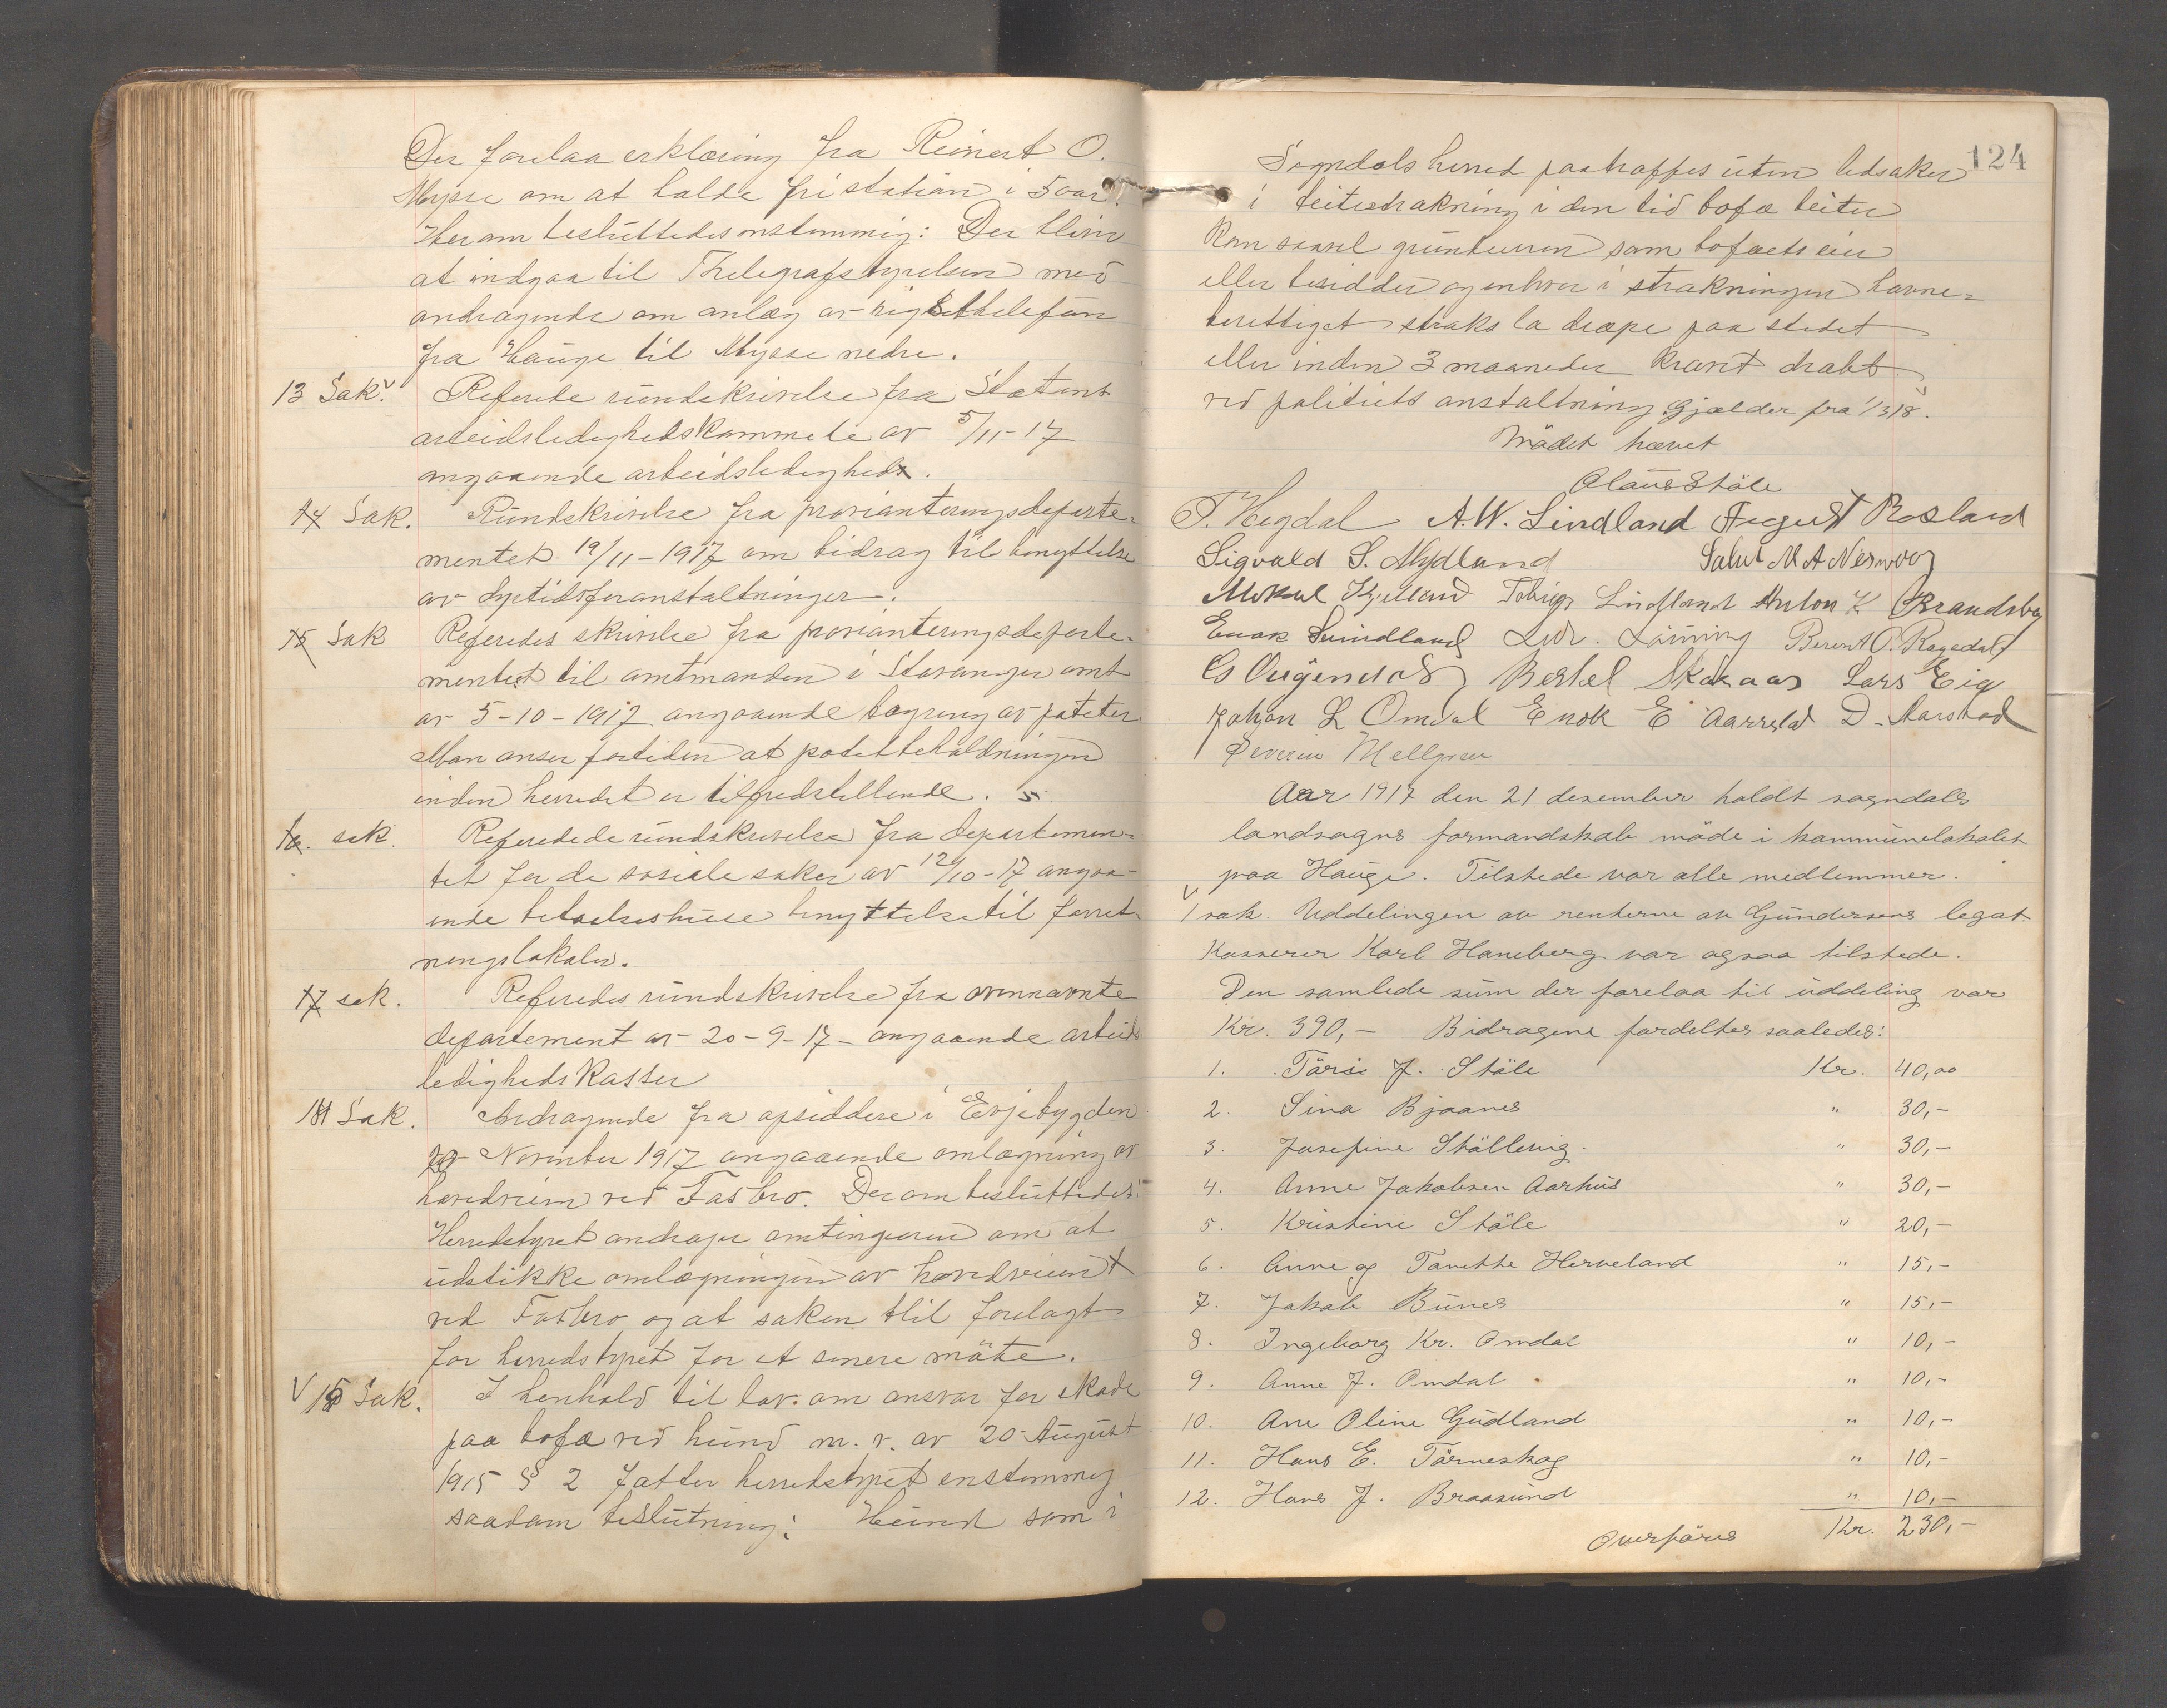 Der forelaa erklæring fra Reinert O.
Mysse om at holde fri station i 5 aar.
Herom besluttedes enstemmig: Der bliver
at indgaa til Thelegrafstyrelsen med
andragende om anlæg av rigstelefon
fra Hauge til Mysse nedre.
13 Sak. Referede rundskrivelse fra Statens
arbeidsledighedskommite av 5/11-17
angaaende arbeidsledighed.
14 Sak. Rundskrivelse fra provianteringsdeparte-
mentet 19/11-1917 om bidrag til benyttelse
av dyrtidsforanstaltninger.
15 Sak Referedes skrivelse fra provianteringsdeparte-
mentet til amtmanden i Stavanger amt
av 5-10-1917 angaaende lagring av poteter.
Man anser fortiden at potetbeholdningen
inden herredet er tilfredstillende.
16. sak. Referedede rundskrivelse fra departemen-
tet for de sosiale saker av 12/10-17 angaa-
ende beboelseshuse benyttelse til forret-
ningslokaler.
17 sak. Referedes rundskrivelse fra ovennævnte
departement av 20-9-17 - angaaende arbeids
ledighedskasser
Sak. Andragende fra opsiddere i Eviebygden
November 1917 angaaende omlægning av
hovedveien ved Fasbro. Derom besluttedes:
Herredstyret andrager amtingeniøren om at
udstikke omlægningen av hovedveien
ved Fasbro og at saken blir forelagt
for herredstyret for et senere møte.
V Sak. I henhold til lov om ansvar for skade
paa bofæ ved hund m. v. av 20 August
1915 § 2 fatter herredstyret enstemmig
saadam beslutning: Hund som i
124
Sogndals herred paatraffes uten ledsaker
i beitestrækning i den tid bofæ beiter
kan saavel grundeieren som bofæets eier
eller besidder og enhver i strækningen havne-
berettiget straks la dræpe paa stedet
eller inden 3 maaneder kræve dræbt
ved politiets anstaltning. Gjælder fra 1/3 18.
Mødet hævet
Claus Støle
T. Hegdal A.W. Lindland August Rosland
Sigvald S. Mydland Salve M A Nesvoog
Mikal Kjelland Tobias Lindland Anton K Brandsberg
Enok Svindland Ludv. Launing Berent O. Rægedal
G Øvgendal Bertel Skaraas Lars Eig
Johan L Omdal Enok E Aarrestad D. Aarstad
Severin Mellgren
Aar 1917 den 21 desember holdt sogndals
landsogns formandskab møde i kommunelokalet
paa Hauge. Tilstede var alle medlemmer.
V
1 sak. Uddelingen av renterne av Gundersens legat.
Kasserer Karl Haneberg var ogsaa tilstede.
Den samlede sum der forelaa til uddeling var
Kr. 390,- Bidragene fordeltes saaledes:
1. Tøris J. Støle Kr. 40,00
2. Sina Bjaanes " 30,-
3. Josefine Stöllevig. " 30,-
4. Anne Jakobsen Aarhus " 30,-
5. Kristine Støle " 20,-
6. Anne og Tanette Herveland " 15,-
7. Jakob Bunes " 15,-
8. Ingeborg Kr. Omdal " 10,-
9. Anne J. Omdal " 10,-
10. Ane Oline Gudland " 10,-
11. Hans E. Tørneskog " 10,-
12. Hans J. Braasund " 10,-
Overføres Kr. 230,-